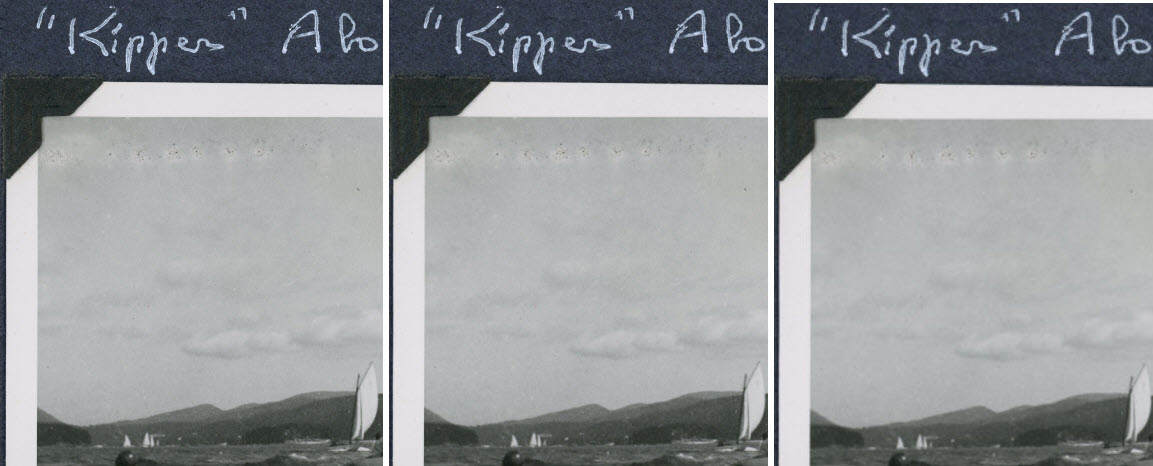 "Kipper" Abo "Kipper" Abo "Kipper" Abo